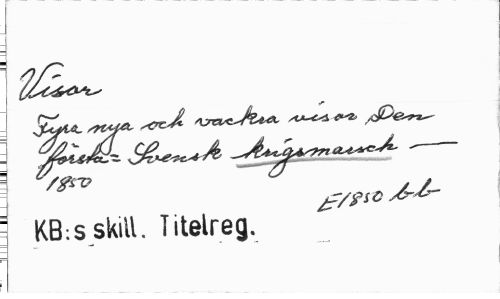 Visor
Fyra nya och vackra visor Den
första= Svensk krigsmarsch —
1850
E1850 bb
KB:s skill. Titelreg.